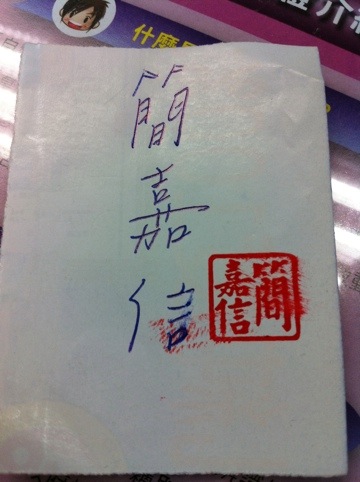 什麼
介
簡嘉信
簡
嘉信